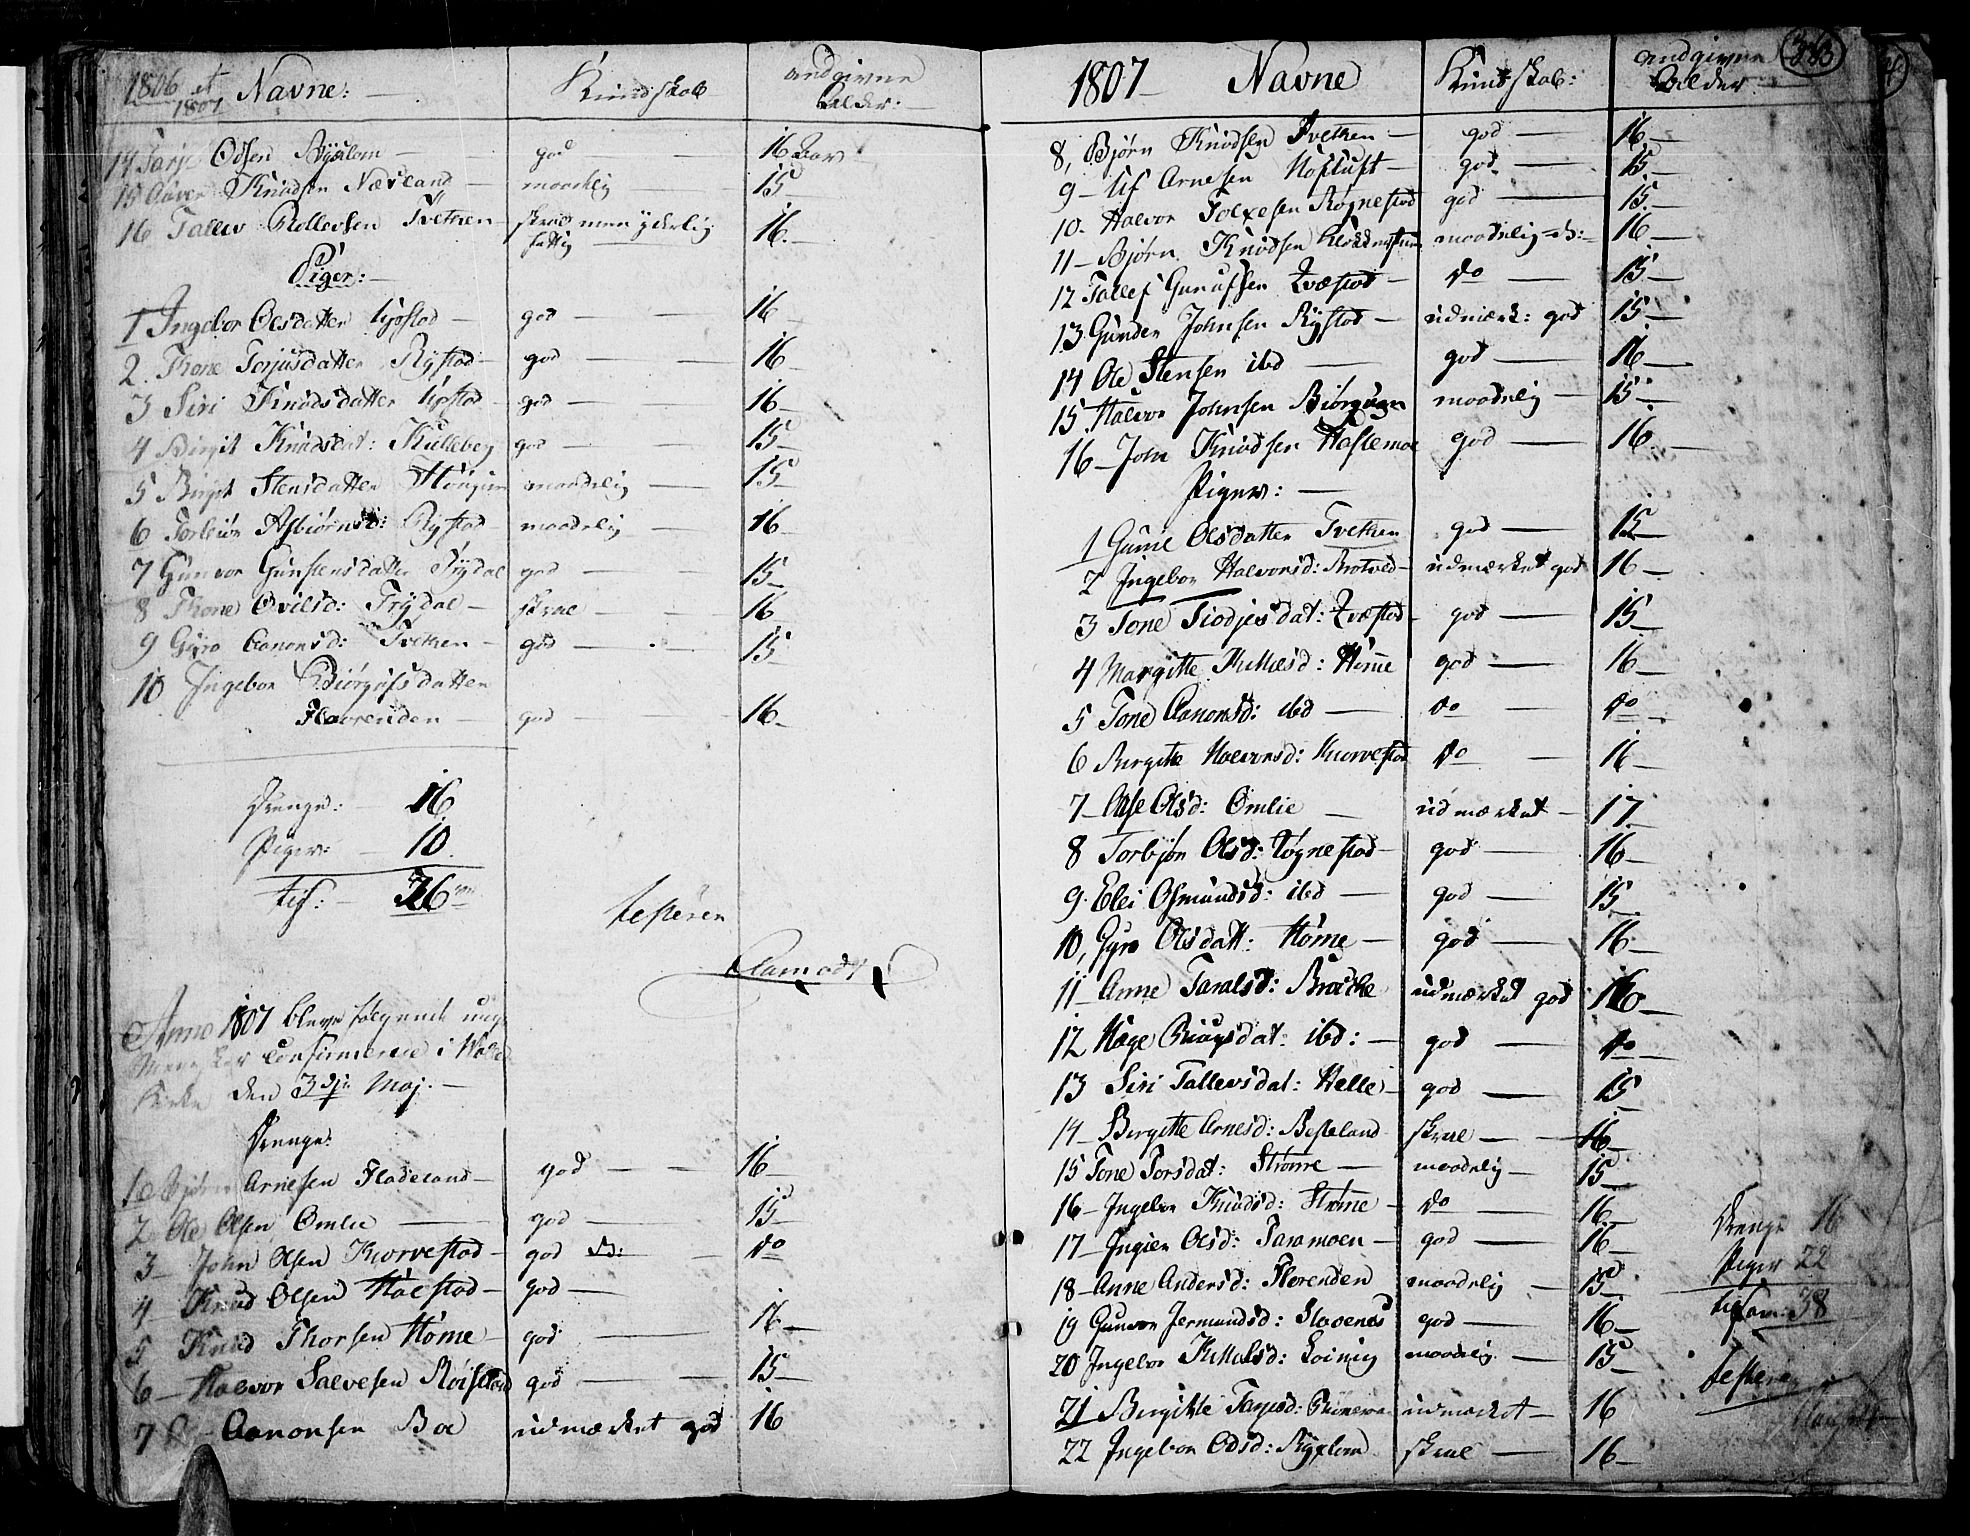 1806 et 1807 Navne: Kundskab andgivne Alder:
14 Tarje Odsen Ryslom god 16 Aar
15 Aaver Knudsen Næsland maadelig 15
16 Tallev Rollevsen Tvethen skral men yderlig fattig 16
Piger:
1 Ingebor Olsdatter god 16
2. Thone Torjusdatter Rystad god 16
3 Siri Knudsdatter god 16
4 Birgit Knudsdat: Kulleberg god 15
5 Birgit Stensdatter maadelig 15
6 Torbiør Asbiørnsd: Rystad maadelig 16
7 Gunvor Gunstensdatter Trydal god 15
8 Thone Evilsd: Trydal skral 16
9 Gyro Aanonsd: Tvethen god 15
10 Ingebor Biørgufsdatter
Flaarenden god 16
Drenge: 16
Piger: 10
tils: 26
testerer
Aamodt
Anno 1807 bleve følgende unge
Mennesker confirmerede i Walle
Kirke den 3die Maj.
Drenge:
1 Bjørn Arnesen Fladeland god 16
2 Ole Olsen Omlie god 15
3 John Olsen Kiorvestad god B: do
4 Knud Olsen Harstad god
5 Knud Thorsen Home god 16
6 Halvor Salvesen Røisland god 15
7 Aanonsen Boe udmærket god 16
1807 Navne Kundskab: andgivne Alder: 363
8, Bjørn Knudsen Tvethen god 16
9 Ulf Arnesen Hoftuft god 15
10. Halvor Folkesen Rygnestad god 15
11 Bjørn Knudsen maadelig 16
12 Tallef Gunufsen do 15
13 Gunder Johnsen Rystad udmærk: god 15
14 Ole Stensen ibd god 16
15. Halvor Johnsen Biørgum maadelig 15
16 John Knudsen Haslemoe god 16
Piger:
1 Gunne Olsdatter Tvethen god 15
2 Ingebor Halvorsd: Brotved udmærket god 16
3 Tone god 15
4 Margitte Kittilsd: Homme god 16
5 Tone Aanonsd: ibd do do
6 Birgitte Halvorsd: Kiorvestad do 16
7 Aase Olsd: Omlie udmærket 17
8 Torbjør Olsd: Rygnestad god 16
9. Eli Osmundsd: ibd god 15
10, Gyro Olsdatt: Home god 16
11 Anne Taralsd: Brocke udmærket god 16
12 Hæge ibd: god do
13 Siri Tallevsdat: Helle god 15
14 Birgitte Arnesd: Besteland skral 16
15 Tone Torsdat: Strømme maadelig 15
16 Ingebor Knudsd: Strømme do 16
17 Ingier Olsd: Faramoen god 16
18 Anne Andersd: Florenden maadelig 15
19 Gunvor Jermundsd: god 16
20 Ingebor Kittilsd: maadelig 15
21 Birgitte Tarjesd: udmærket 16
22 Ingebor Odsd: Ryslom skral 16
Drenge 16
Piger 22
tilsam: 38
testerer